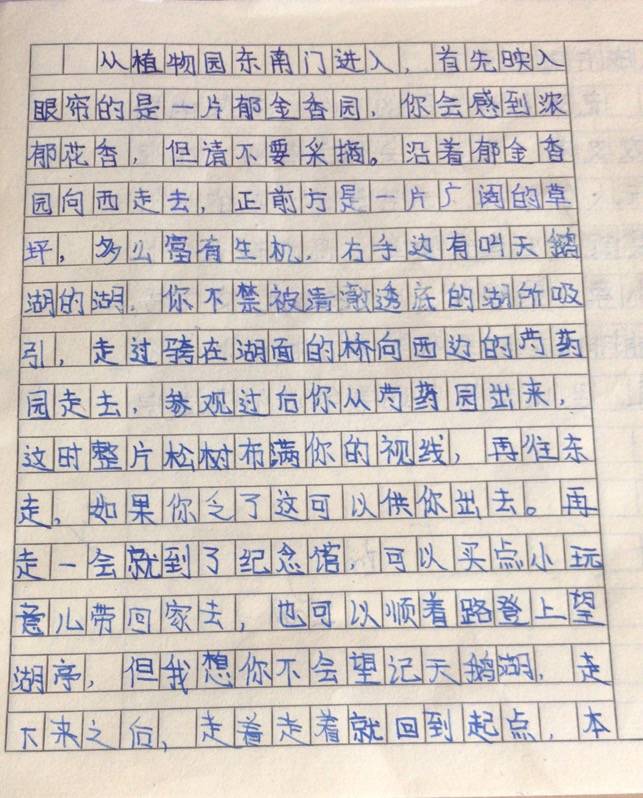 从植物园东南门进入，首先映入
眼帘的是一片郁金香园，你会感到浓
郁花香，但请不要采摘。沿着郁金香
园向西走去，正前方是一片广阔的草
坪，多么富有生机，右手边有叫天鹅
湖的湖，你不禁被清澈透底的湖所吸
引，走过骑在湖面的桥向西边的芍药
园走去，参观过后你从芍药园出来，
这时整片松树布满你的视线，再往东
走。如果你乏了这可以供你出去。再
走一会就到了纪念馆，可以买点小玩
意儿带回家去，也可以顺着路登上望
湖亭，但我想你不会望记天鹅湖，走
下来之后，走着走着就回到起点，本